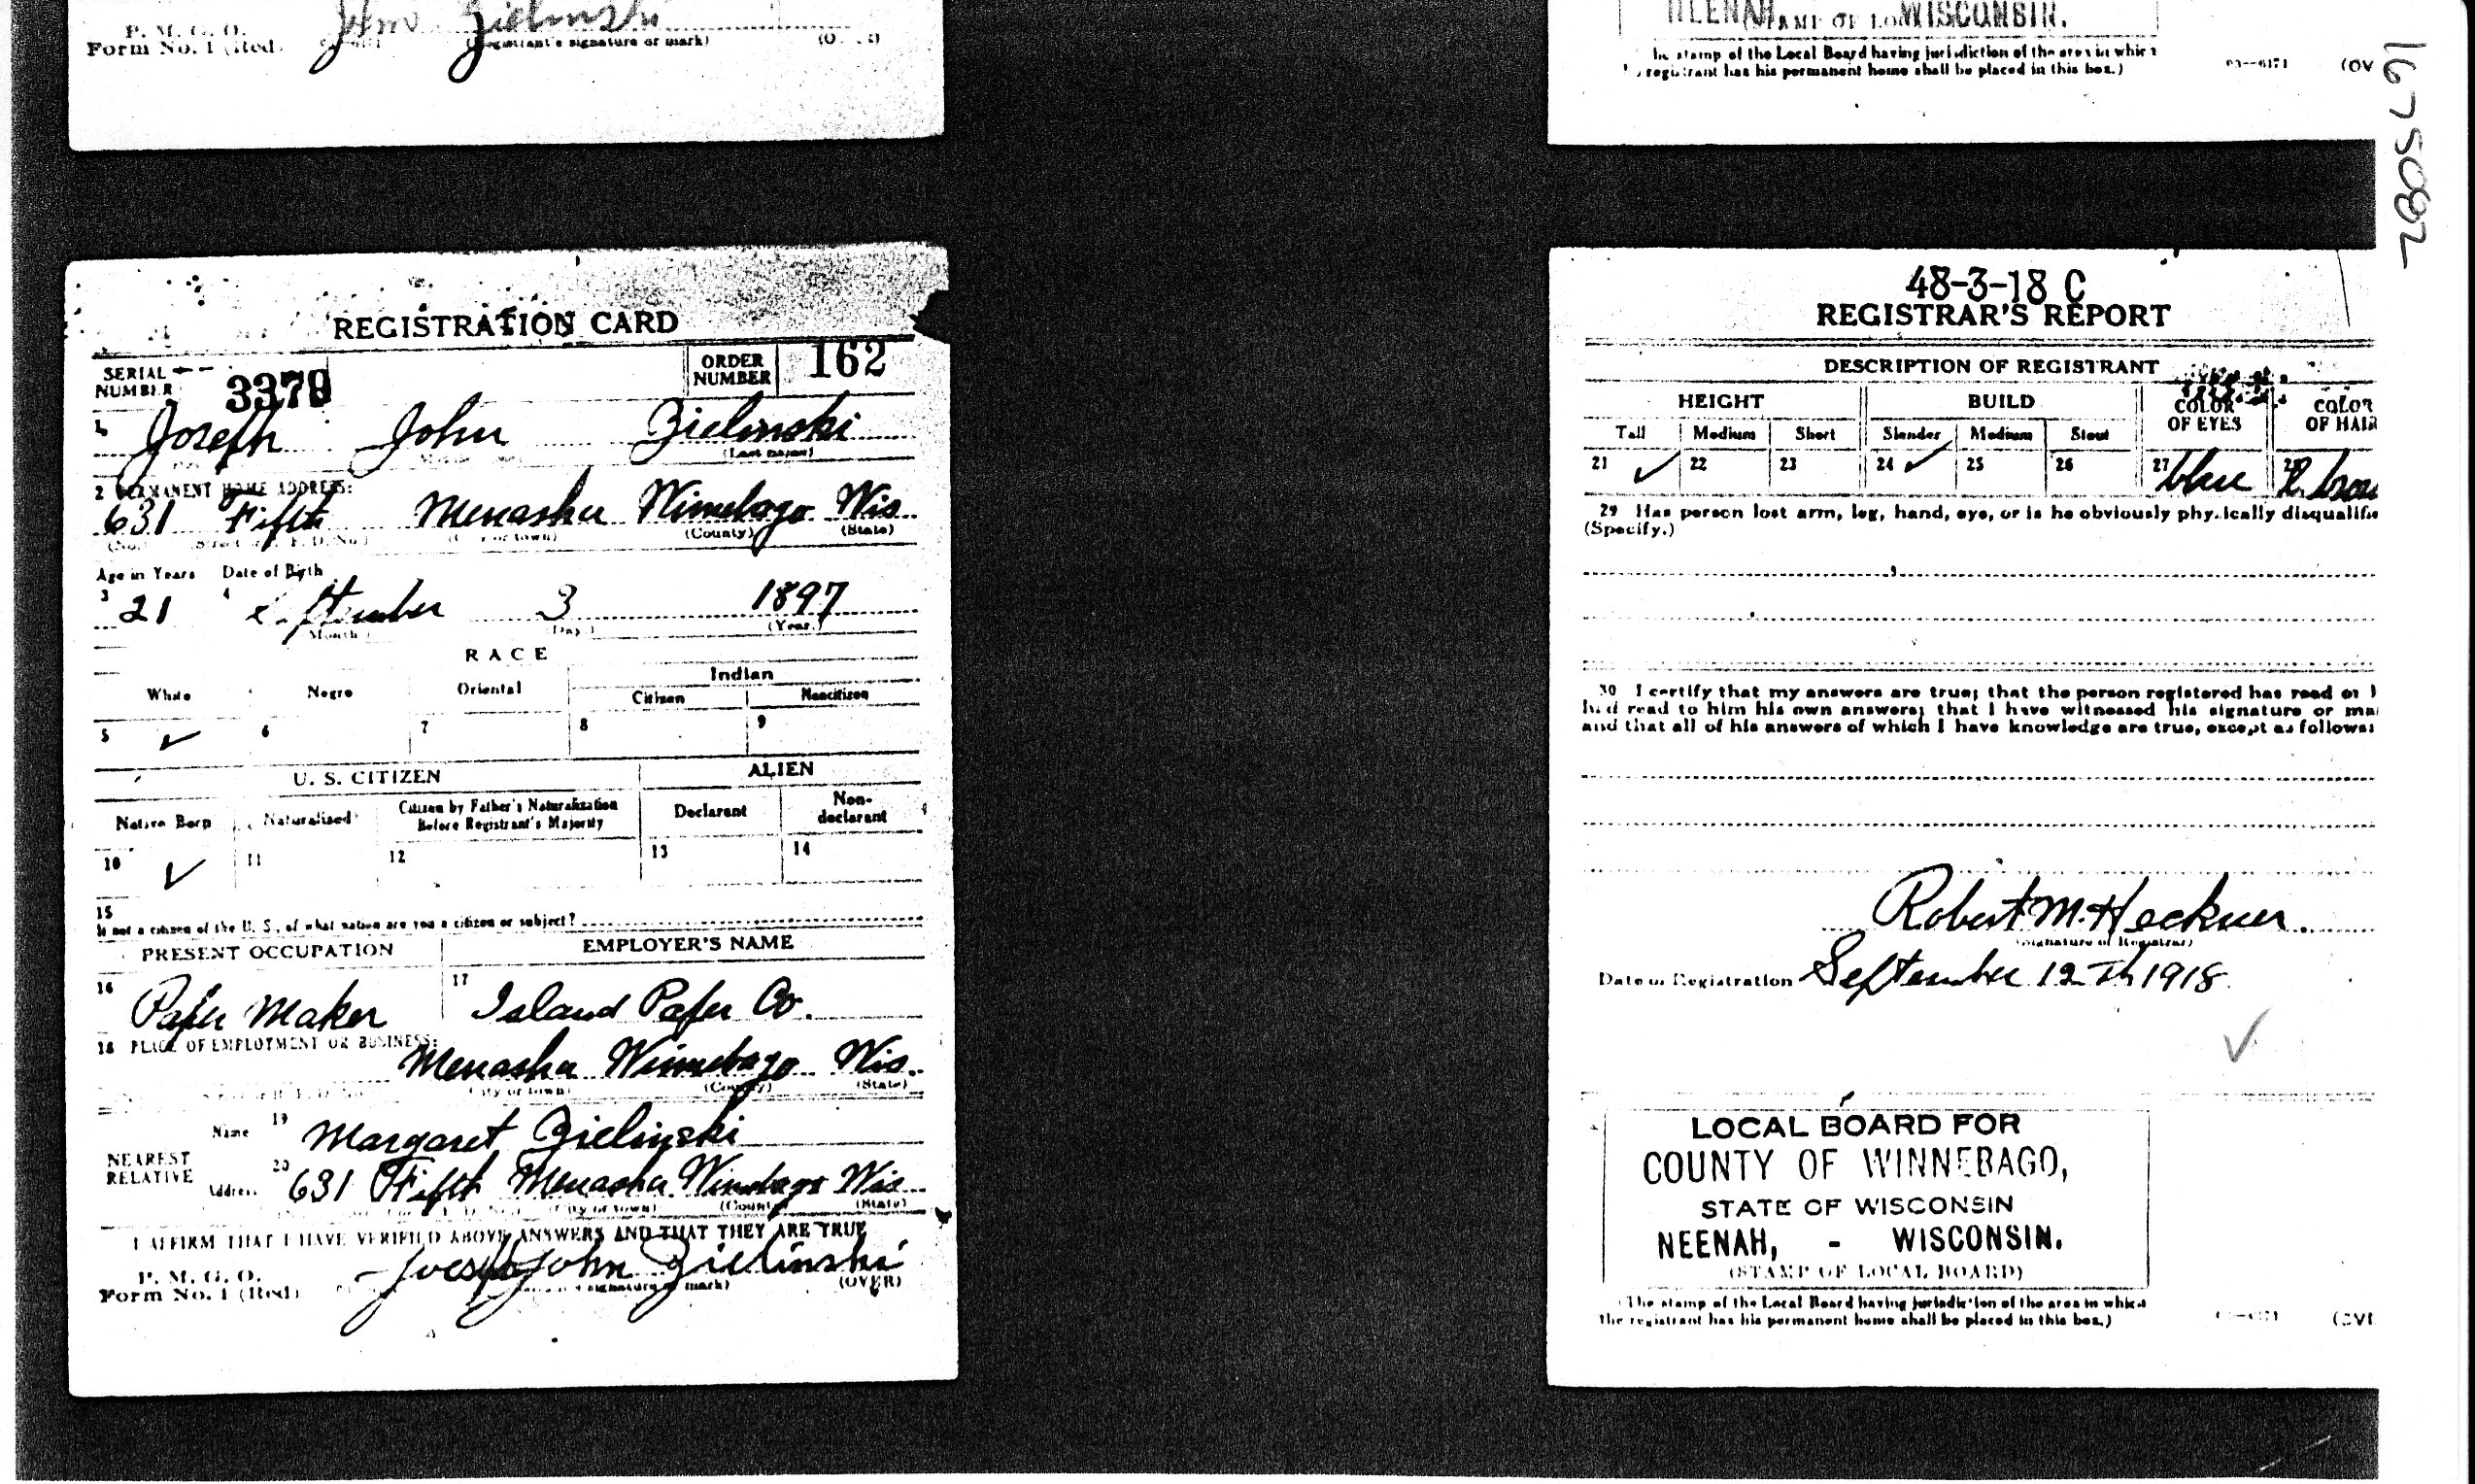 P. M. G. O.
Form No. 1 (Red)
John Zielinski
(Registrant's signature or mark)
NEENAH, WISCONSIN.
(The stamp of the Local Board having jurisdiction of the area in which
the registrant has his permanent home shall be placed in this box.)
03—6171 (OV
1675082
REGISTRATION CARD
SERIAL NUMBER
ORDER NUMBER 162
1 Joseph John Zielinski
(Last name)
2 PERMANENT HOME ADDRESS:
631 Fifth Menasha Winnebago Wis
(No.) (City or town) (County) (State)
Age in Years Date of Birth
3 21 4 September 3 1897
(Month.) (Day.) (Year.)
RACE
White Negro Oriental Indian
Citizen Noncitizen
5 ✓ 6 7 8 9
U. S. CITIZEN ALIEN
Native Born Naturalized Citizen by Father's Naturalization Before Registrant's Majority Declarant Non-declarant
10 ✓ 11 12 13 14
15
If not a citizen of the U. S., of what nation are you a citizen or subject?
PRESENT OCCUPATION EMPLOYER'S NAME
16 Paper Maker 17 Island Paper Co.
18 PLACE OF EMPLOYMENT OR BUSINESS:
Menasha Winnebago Wis.
(City or town) (County) (State)
NEAREST RELATIVE
Name 19 Margaret Zielinski
Address 20 631 Fifth Menasha Winnebago Wis
(City or town) (County) (State)
I AFFIRM THAT I HAVE VERIFIED ABOVE ANSWERS AND THAT THEY ARE TRUE
P. M. G. O.
Form No. 1 (Red)
Joseph John Zielinski
(Registrant's signature or mark) (OVER)
48-3-18 C
REGISTRAR'S REPORT
DESCRIPTION OF REGISTRANT
HEIGHT BUILD COLOR OF EYES COLOR OF HAIR
Tall Medium Short Slender Medium Stout
21 ✓ 22 23 24 ✓ 25 26 27 blue
29 Has person lost arm, leg, hand, eye, or is he obviously physically disqualifie
(Specify.)
30 I certify that my answers are true; that the person registered has read or h
had read to him his own answers; that I have witnessed his signature or mar
and that all of his answers of which I have knowledge are true, except as follows:
Robert M. Heckner.
(Signature of Registrar)
Date of Registration September 12 Th 1918
✓
LOCAL BOARD FOR
COUNTY OF WINNEBAGO,
STATE OF WISCONSIN
NEENAH, - WISCONSIN.
(STAMP OF LOCAL BOARD)
(The stamp of the Local Board having jurisdiction of the area in which
the registrant has his permanent home shall be placed in this box.)
(OVE